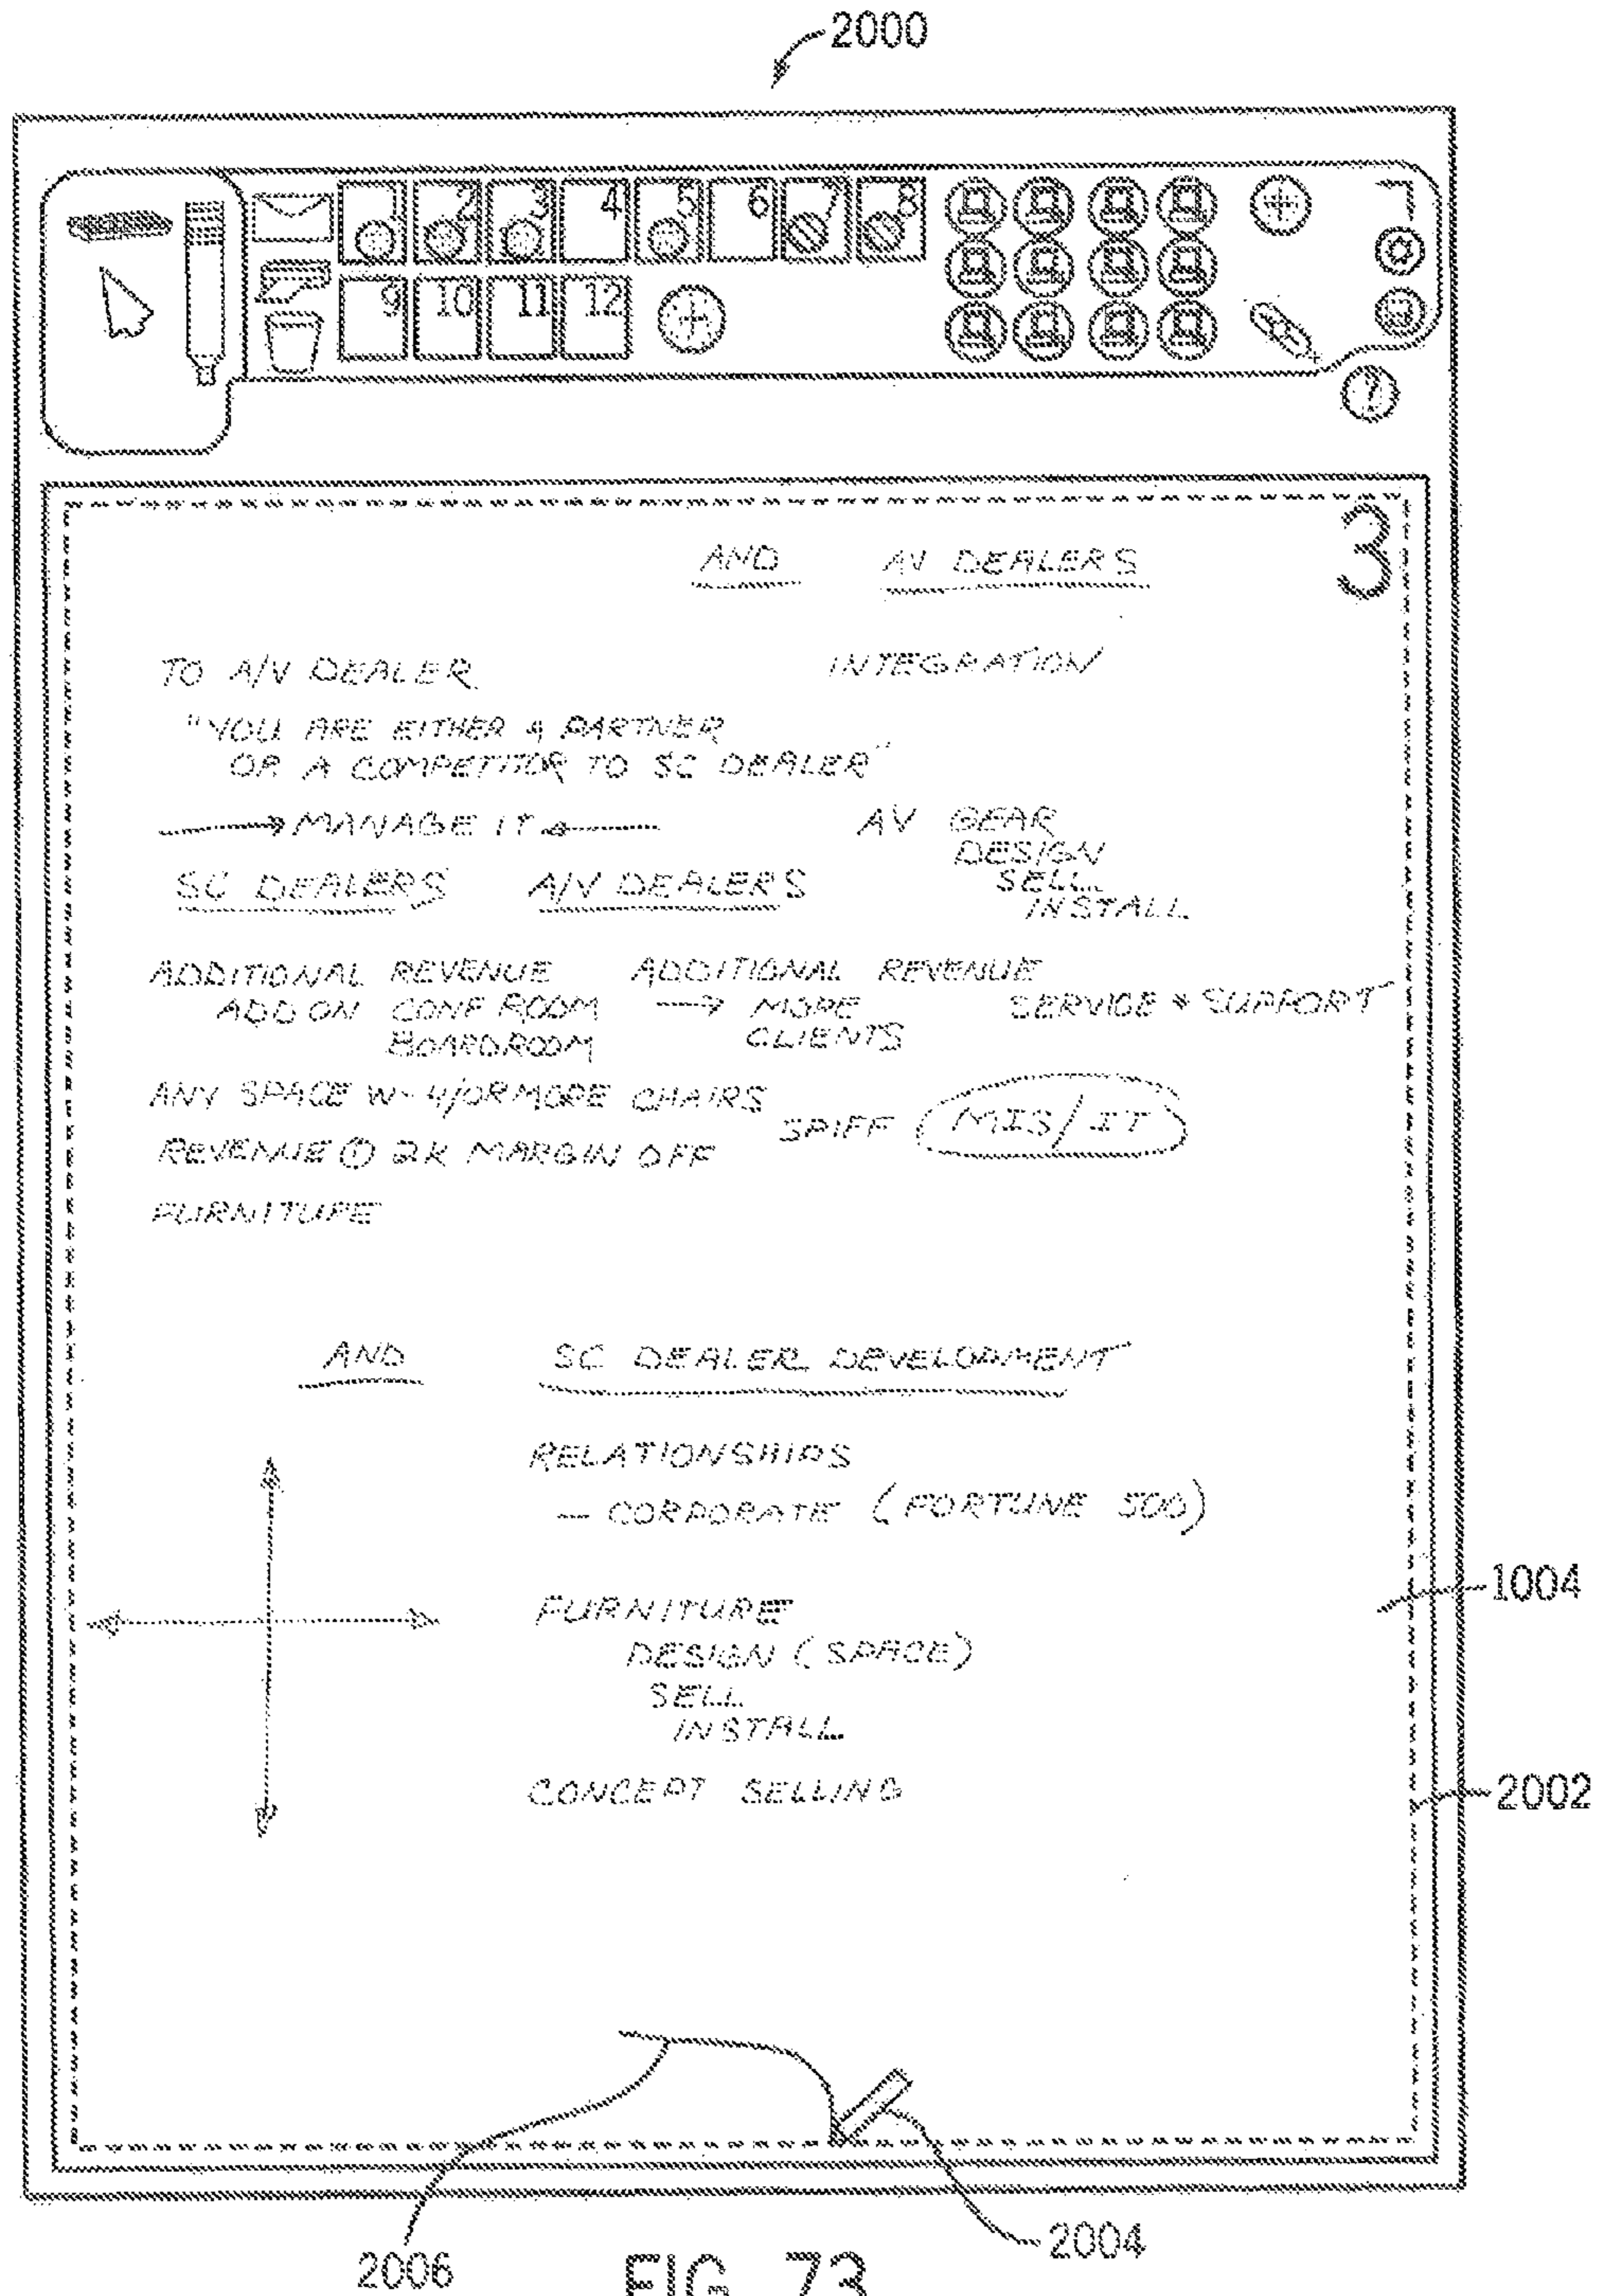 2000
1 2 3 4 5 6 7 8
9 10 11 12
?
3
AND AV DEALERS
TO A/V DEALER INTEGRATION
"YOU ARE EITHER A PARTNER
OR A COMPETITOR TO SC DEALER"
MANAGE IT AV GEAR
DESIGN
SELL
INSTALL
SC DEALERS A/V DEALERS
ADDITIONAL REVENUE ADDITIONAL REVENUE
ADD ON CONF ROOM → MORE SERVICE + SUPPORT
BOARDROOM CLIENTS
ANY SPACE W- 4/OR MORE CHAIRS
SPIFF MIS/IT
REVENUE ① 2K MARGIN OFF
FURNITURE
AND SC DEALER DEVELOPMENT
RELATIONSHIPS
— CORPORATE (FORTUNE 500)
1004
FURNITURE
DESIGN (SPACE)
SELL
INSTALL
CONCEPT SELLING
2002
2004
2006
FIG. 73